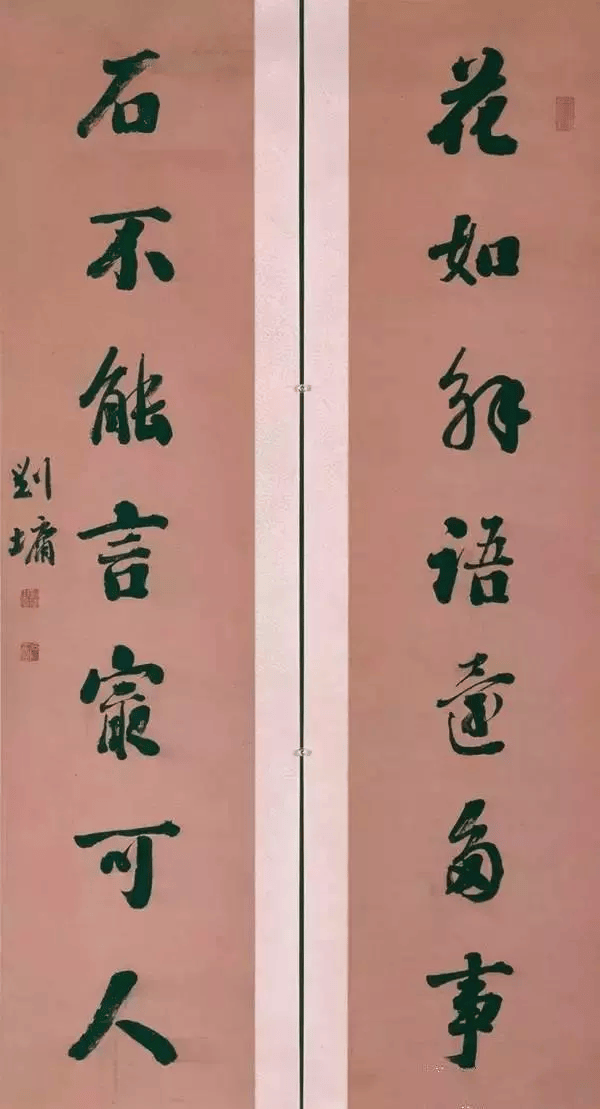 花如解語還多事
石不能言㝡可人
劉墉